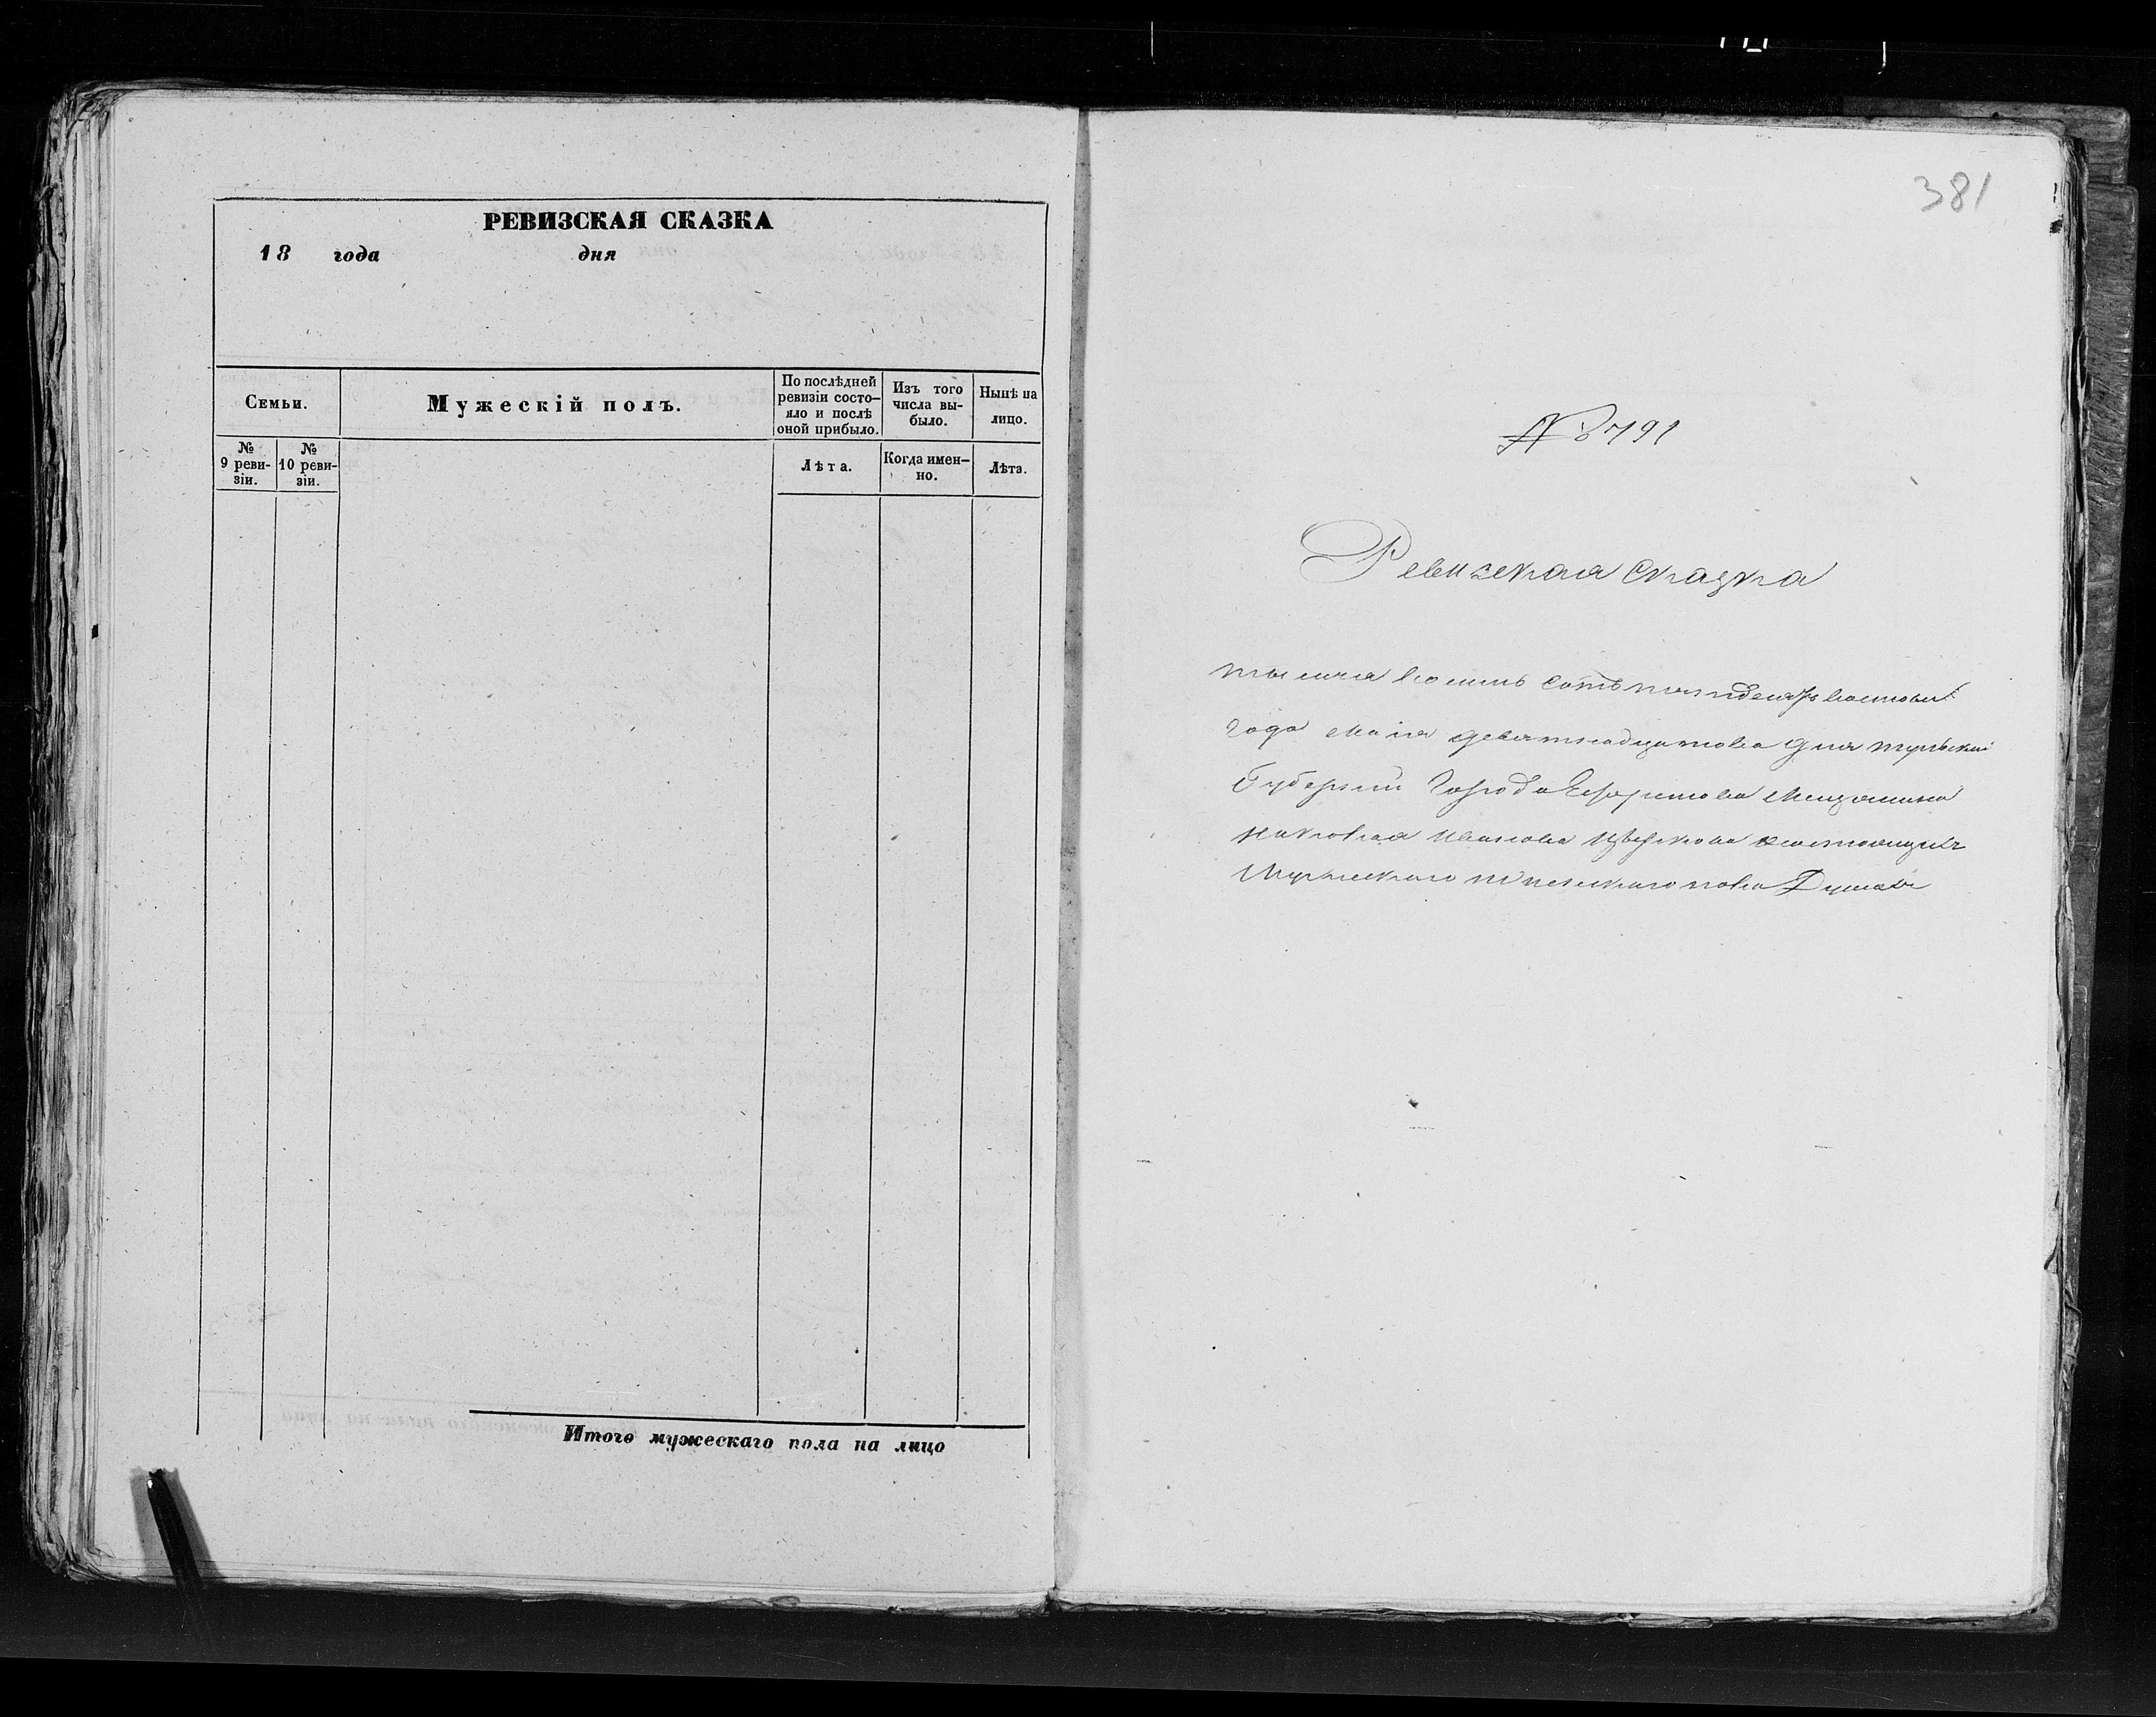 РЕВИЗСКАЯ СКАЗКА
18 года дня
Семьи.
Мужескій полъ.
По послѣдней
ревизіи состо-
яло и послѣ
оной прибыло.
Изъ того
числа вы-
было.
Нынѣ на
лицо.
№
9 реви-
зіи.
№
10 реви-
зіи.
Лѣта.
Когда имен-
но.
Лѣта.
Итого мужескаго пола на лицо
381
№ 791
Ревизская сказка
тысяча восемь сотъ
года маія девятнадцатова дня тульской
Губерніи Города Ефремова мещанина
николая иванова
мужескаго женскаго пола Душахъ